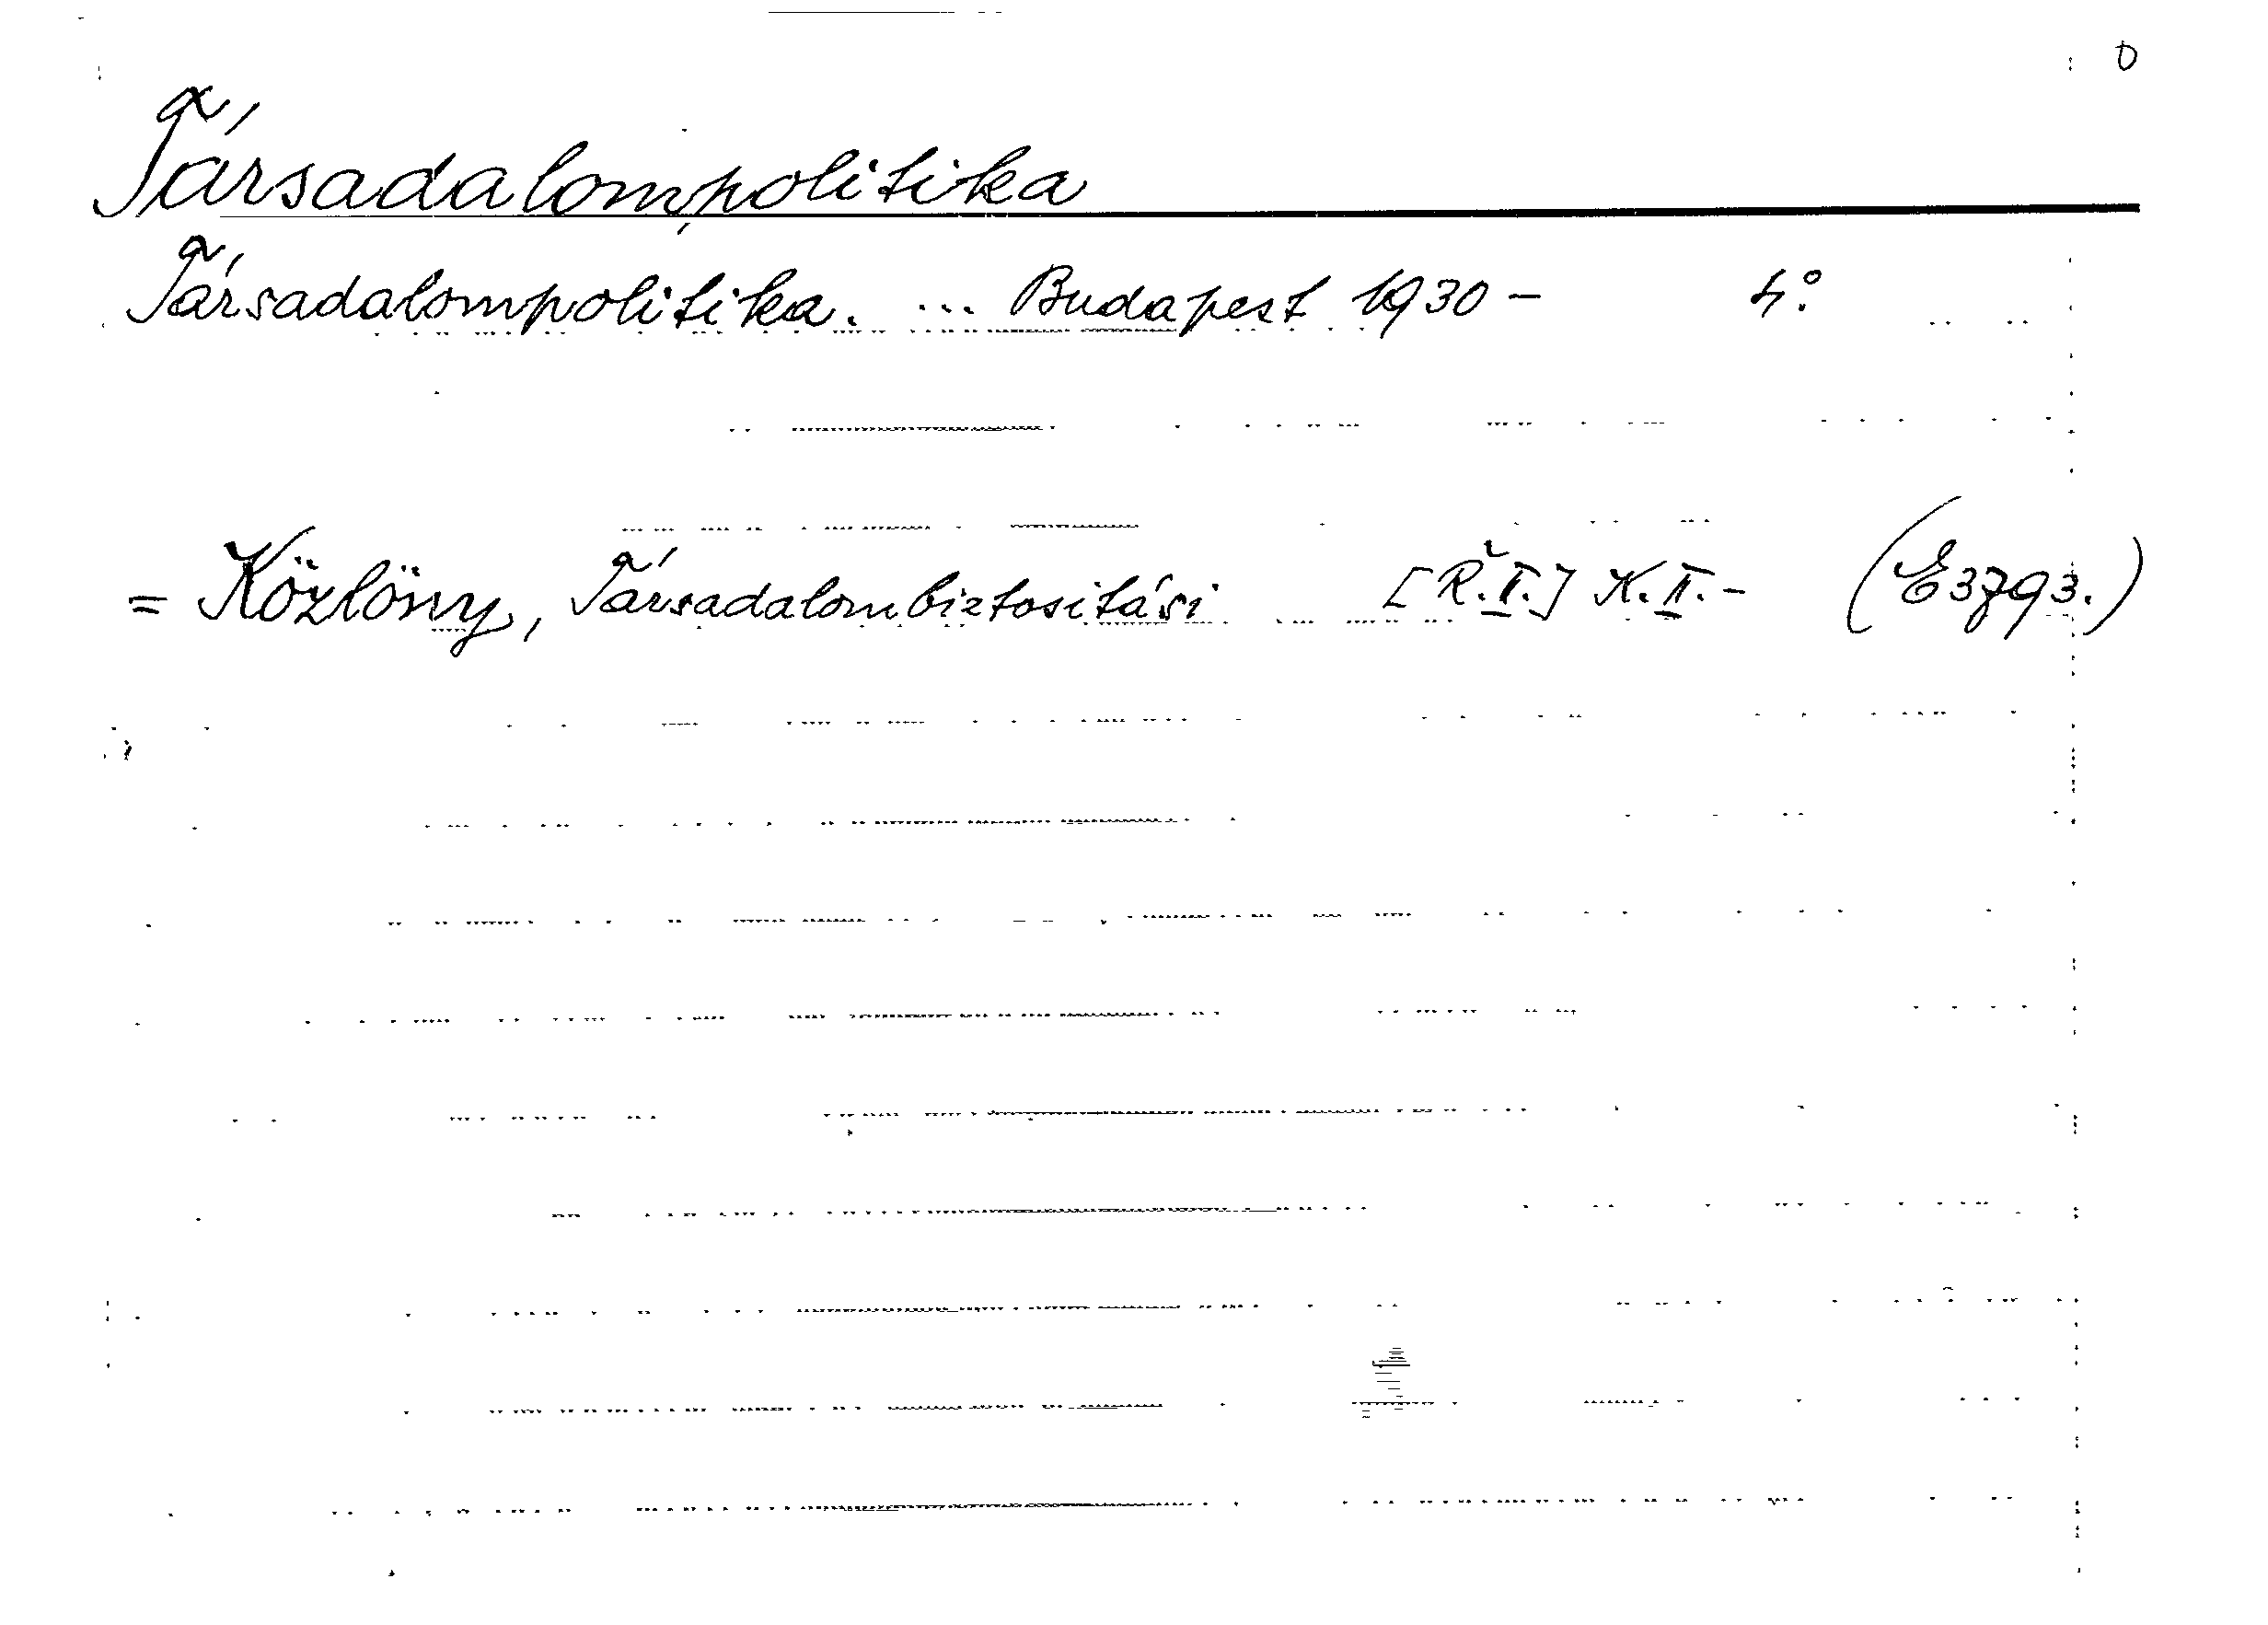 D
Társadalompolitika
Társadalompolitika. ... Budapest 1930 - 4°.
= Közlöny, Társadalombiztositási [R. I.] K. II. - (E3793.)